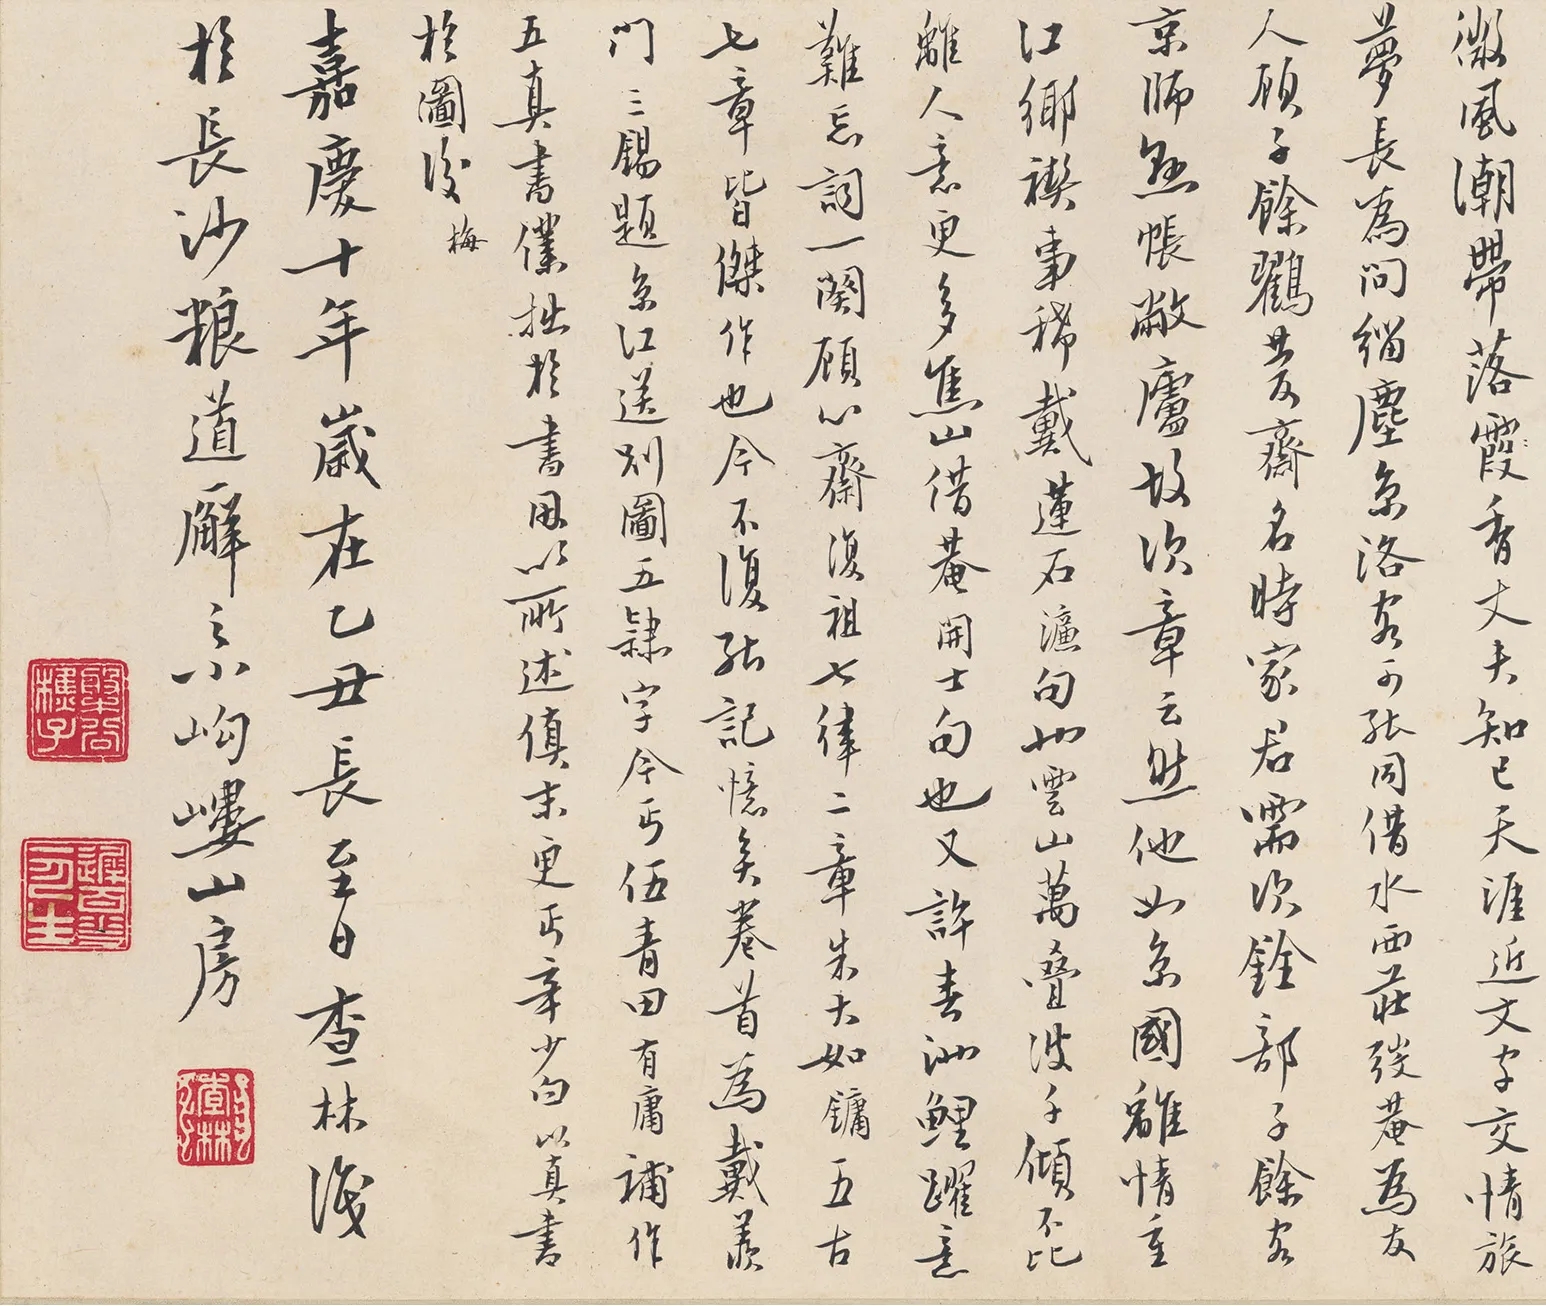 微風潮帶落霞香丈夫知己天涯近文字交情旅
夢長為問緇塵京洛客可能同借水西莊茭菴為友
人顧子餘鸛共友齋名時家君需次銓部子餘客
京師無帳敝廬故次章云然他如京國離情重
江鄉禊事稀戴蓮石濂句也雲山萬疊波千傾不比
離人意更多焦山借菴開士句也又許春洲鯉躍意
難忘詞一闋顧心齋復祖七律二章朱大如鏞五古
七章皆傑作也今不復能記憶矣卷首為戴羨
門三錫題京江送別圖五隸字今丐伍青田有庸補作
五真書僕拙於書因以所述傎末更丐辛少白以真書
於圖後 梅
嘉慶十年歲在乙丑長至日查林識
於長沙粮道廨之小岣嶁山房
查林